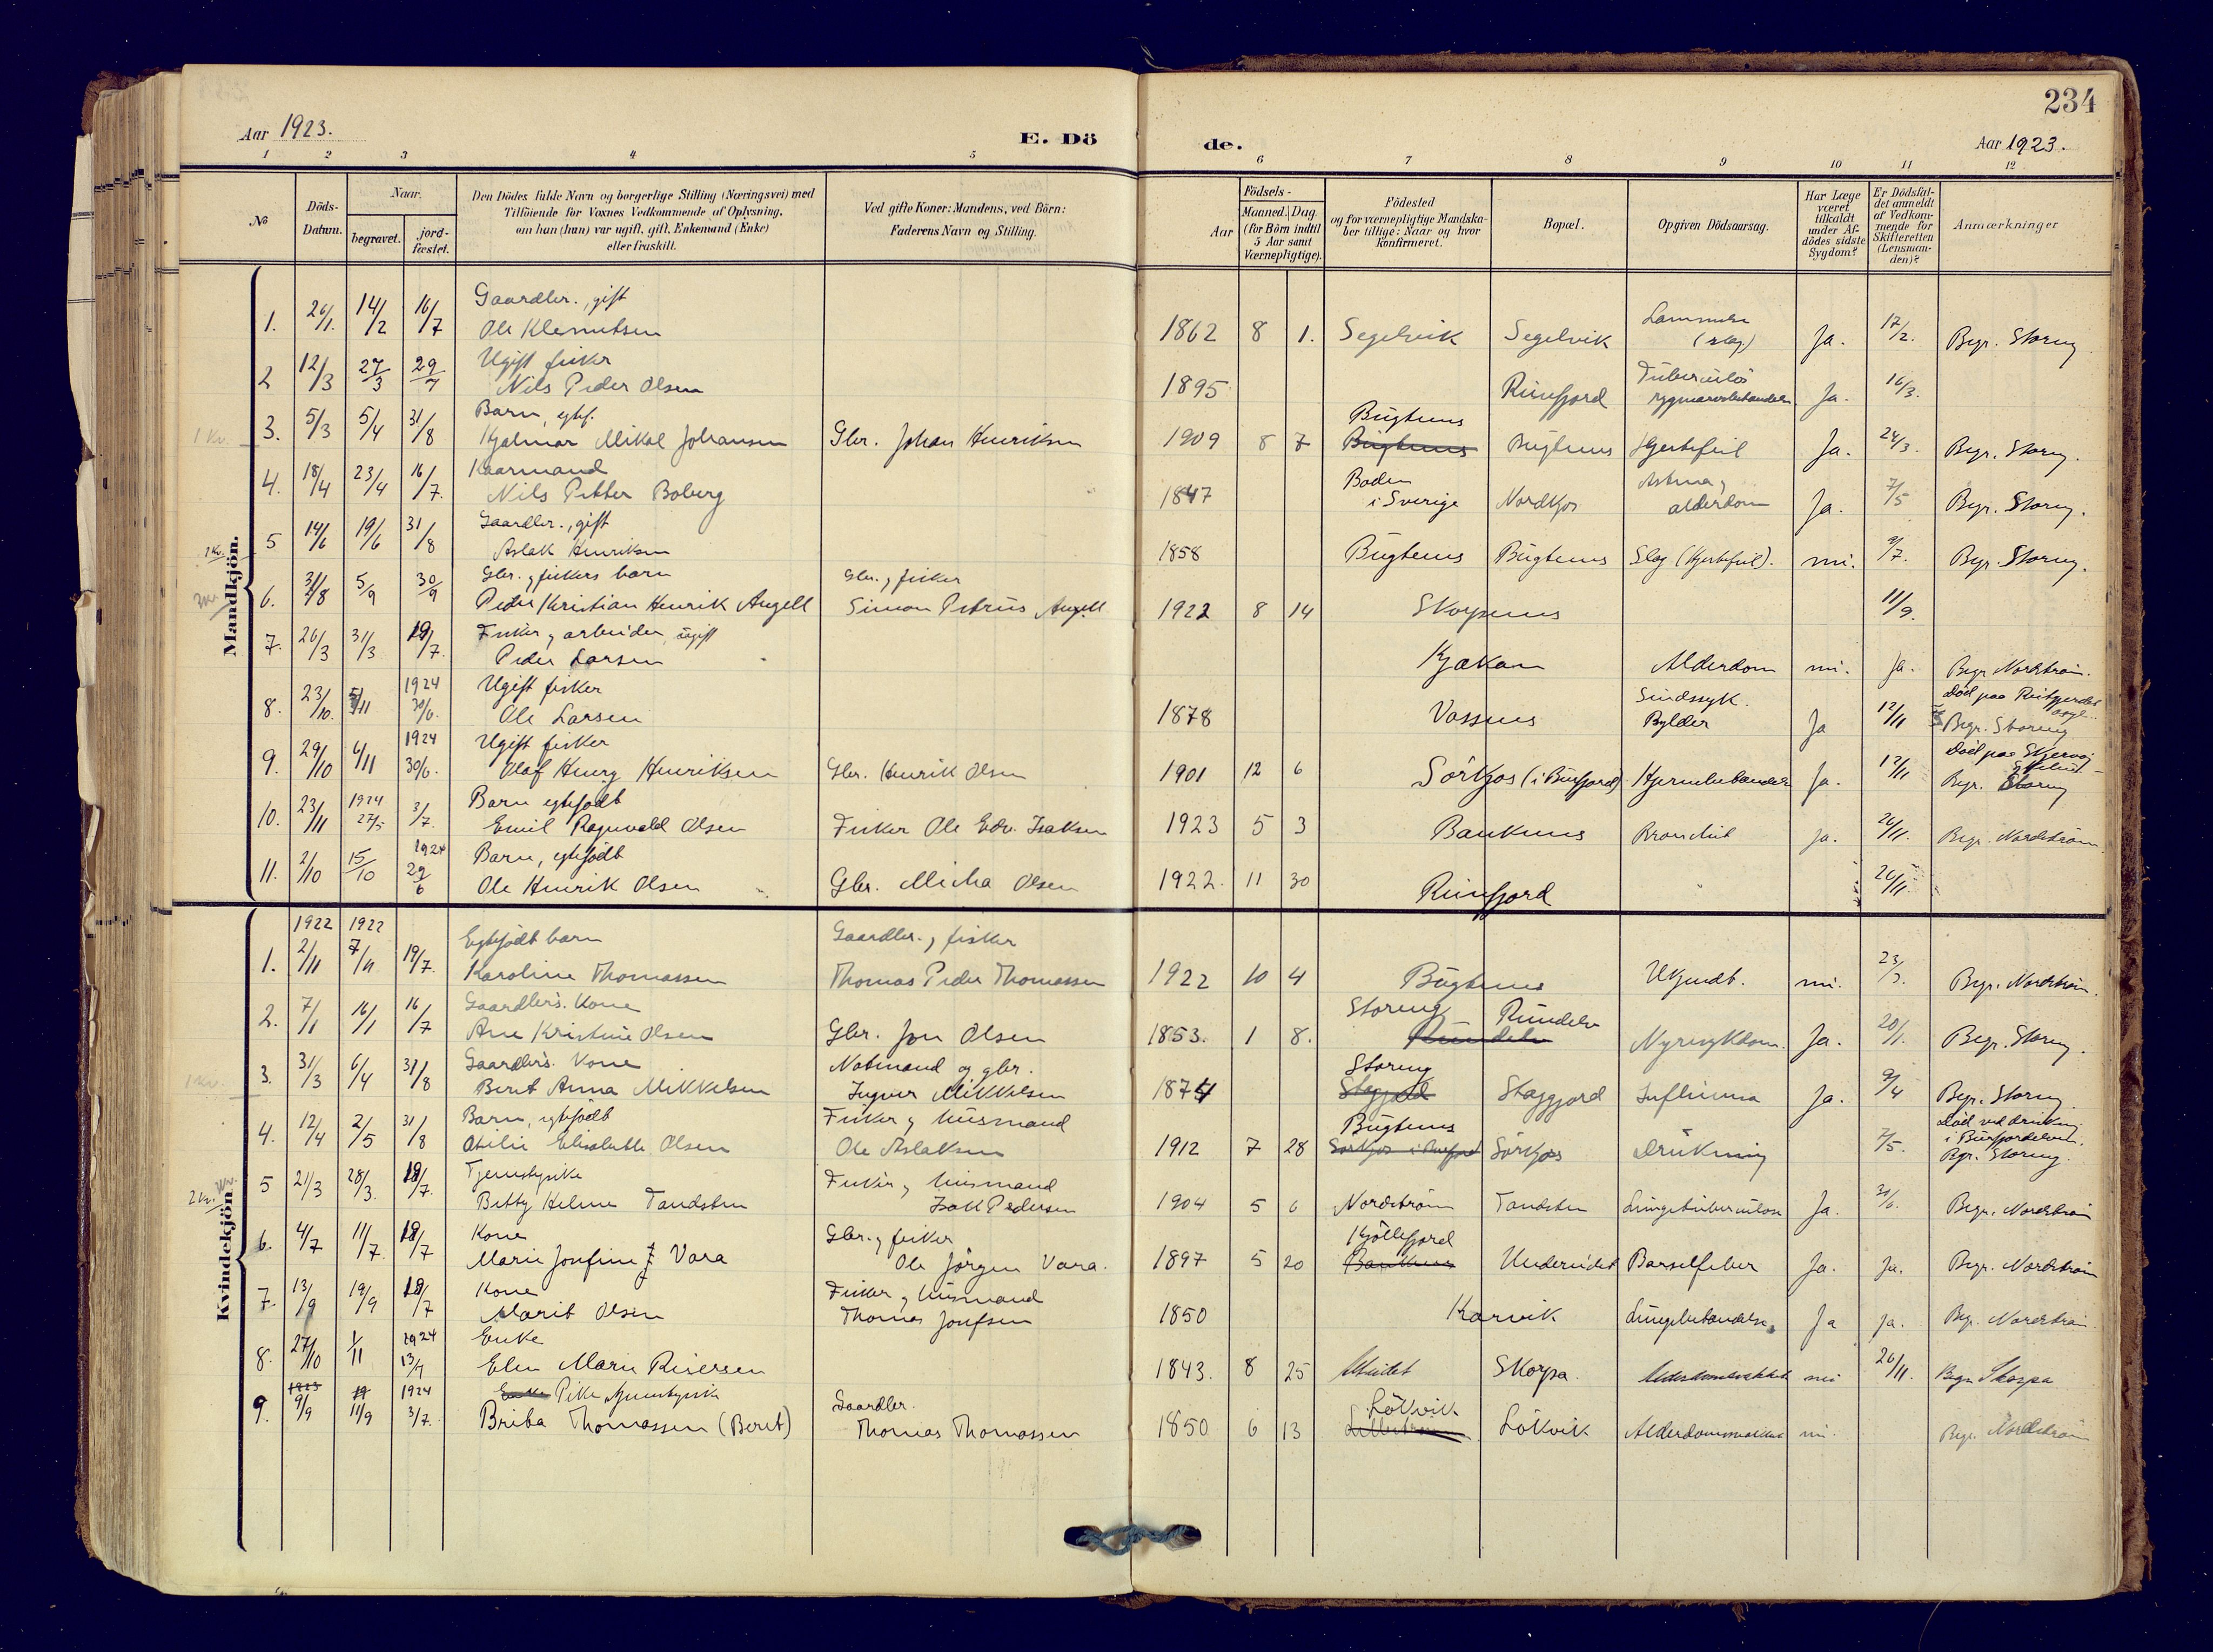 234
Aar 1923.
E. Dö
de.
Aar 1923.
1 2 3 4 5 6 7 8 9 10 11 12
No
Döds-Datum.
Naar.
begravet.
jord-fæstet.
Den Dödes fulde Navn og borgerlige Stilling (Næringsvei) med
Tilföiende for Voxnes Vedkommende af Oplysning,
om han (hun) var ugift, gift, Enkemand (Enke)
eller fraskilt.
Ved gifte Koner: Mandens, ved Börn:
Faderens Navn og Stilling.
Födsels-
Aar
Maaned. Dag.
(for Börn indtil
5 Aar samt
Værnepligtige).
Födested
og for værnepligtige Mandska-
ber tillige: Naar og hvor
konfirmeret.
Bopæl.
Opgiven Dödsaarsag.
Har Læge
været
tilkaldt
under Af-
dödes sidste
Sygdom?
Er Dödsfal-
det anmeldt
af Vedkom-
mende for
Skifteretten
(Lensman-
den)?
Anmærkninger
Mandkjön.
Gaardbr., gift
1. 26/1. 14/2 16/7 Ole Klemetsen 1862 8 1. Segelvik Segelvik Lammelse (slag) Ja. 17/2. Begr. Storeng.
Ugift fisker
2 12/3 27/3 29/7 Nils Peder Olsen 1895 Riinfjord Tuberculös Ja. 16/3.
Barn, egtef.
3. 5/3 5/4 31/8 Hjalmar Mikal Johansen Gbr. Johan Henriksen 1909 8 7 Bugtenes Bugtenes Bugtenes Hjertefeil Ja. 24/3. Begr. Storeng.
Kaarmand
4. 18/4 23/4 16/7. Nils Petter Boberg 1847 Boden i Sverige Nordkjos Astma, alderdom Ja. 7/5 Begr. Storeng.
Gaardbr., gift
5 14/6 19/6 31/8 Aslak Henriksen 1858 Bugtenes Bugtenes Slag (Hjertefeil). nei. 9/7. Begr. Storeng.
Gbr. og fiskers barn Gbr. og fisker
6. 31/8 5/9 30/9 Peder Kristian Henrik Angell Simon Petrus Angell 1922 8 14 Skorpenes 11/9.
Fisker og arbeider, ugift
7. 26/3 31/3 19/7. Peder Larsen Kjækan Alderdom nei. ja. Begr. Nordström.
1924 Ugift fisker
8. 23/10. 5/11 30/6. Ole Larsen 1878 Vassnes Sindssyk. Bylder Ja 12/11 Död paa Begr. Storeng
1924 Ugift fisker
9. 29/10 6/11 30/6. Olaf Henry Henriksen Gbr. Henrik Olsen 1901 12 6 Sörkjos (i Burfjord) Ja. 12/11 Död paa Skjervøy Begr. Storeng
1924 Barn egtefödt
10. 23/11 27/5 3/7. Emil Ragnvald Olsen Fisker Ole Edv. Isaksen 1923 5 3 Bankenes Bronchit ja. 26/11. Begr. Nordström.
1924 Barn, egtefödt
11. 2/10 15/10 29/6 Ole Henrik Olsen Gbr. Micha Olsen 1922. 11 30 Riinfjord 26/11.
Kvindekjön.
1922 1922 Egtefödt barn Gaardbr. og fisker
1. 2/11 7/11 19/7. Karoline Thomassen Thomas Peder Thomassen 1922 10 4 Bugtenes Ukjendt. nei. 23/3. Begr. Nordström.
Gaardbr's. kone
2. 7/1 16/1 16/7 Ane Kristine Olsen Gbr. Jon Olsen 1853. 1 8. Storeng Rundelv Nyresykdom. Ja. 20/1. Begr. Storeng.
Gaardbr's. kone Notmand og gbr.
3. 31/3 6/4 31/8 Berit Anna Mikkelsen Ingver Mikkelsen 1874 Storeng Staggjord Influensa Ja. 9/4 Begr. Storeng.
Barn, egtefödt Fisker og husmand
4. 12/4 2/5 31/8 Otilie Elisabeth Olsen Ole Aslaksen 1912 7 28 Bugtenes Sörkjos i Burfjord Sörkjos Drukning 7/5. Död ved drukning i Burfjordelven. Bgr. Storeng.
Tjenstpike Fisker og husmand
5 21/3 28/3. 19/7. Betty Helene Tandsten Isak Pedersen 1904 5 6 Nordström Tandsten Lungetuberculose Ja. Begr. Nordström
Kone Gbr. og fisker
6. 4/7 11/7. 19/7 Marie Josefine Vara Ole Jörgen Vara. 1897 5 20 Kjöllefjord Bankenes Undereidet Barselfeber Ja. Ja. Begr. Nordström
Kone Fisker og husmand
7. 13/9 19/9 19/7 Marit Olsen Thomas Josefsen 1850 Karvik Lungebetændelse Ja ja. Begr. Nordström.
1924 Enke
8. 27/10 1/11 13/7 Elen Marie Reiersen 1843. 8 25 Skorpa. nei 26/11. Begr. Skorpa
1923 1924 Enke Pike, tjenestpike Gaardbr.
9. 9/9 11/9 3/7. Briba Thomassen (Beret) Thomas Thomassen 1850 6 13 Lökvik Lökvik nei. Begr. Nordström